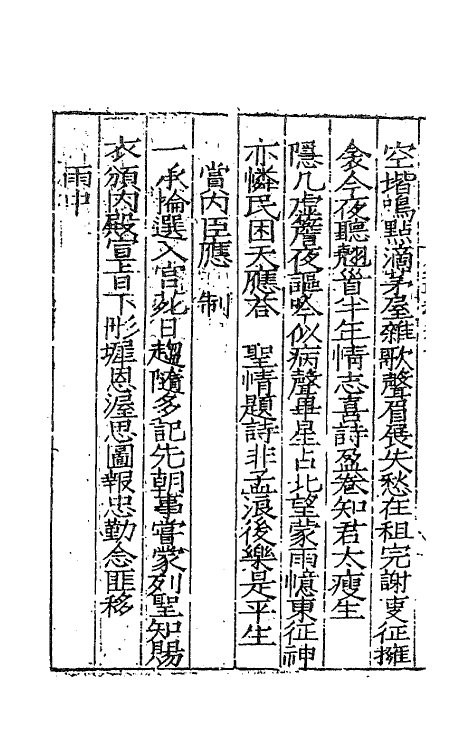 空堦鳴點滴茅屋雜歌聲眉展失愁在租完謝吏征擁
衾今夜聽翹首半年情志喜詩盈卷知君太瘦生
隱几虛簷夜謳吟似病聲畢星占北望蒙雨憶東征神
亦憐民困天應荅　聖情題詩非孟浪後樂是平生
當内臣應　制
一承掄選入宫
日趨隨多記先朝事嘗蒙列聖知賜
衣頒内殿宣旨下彤墀恩渥思圖報忠勤念匪移
雨中